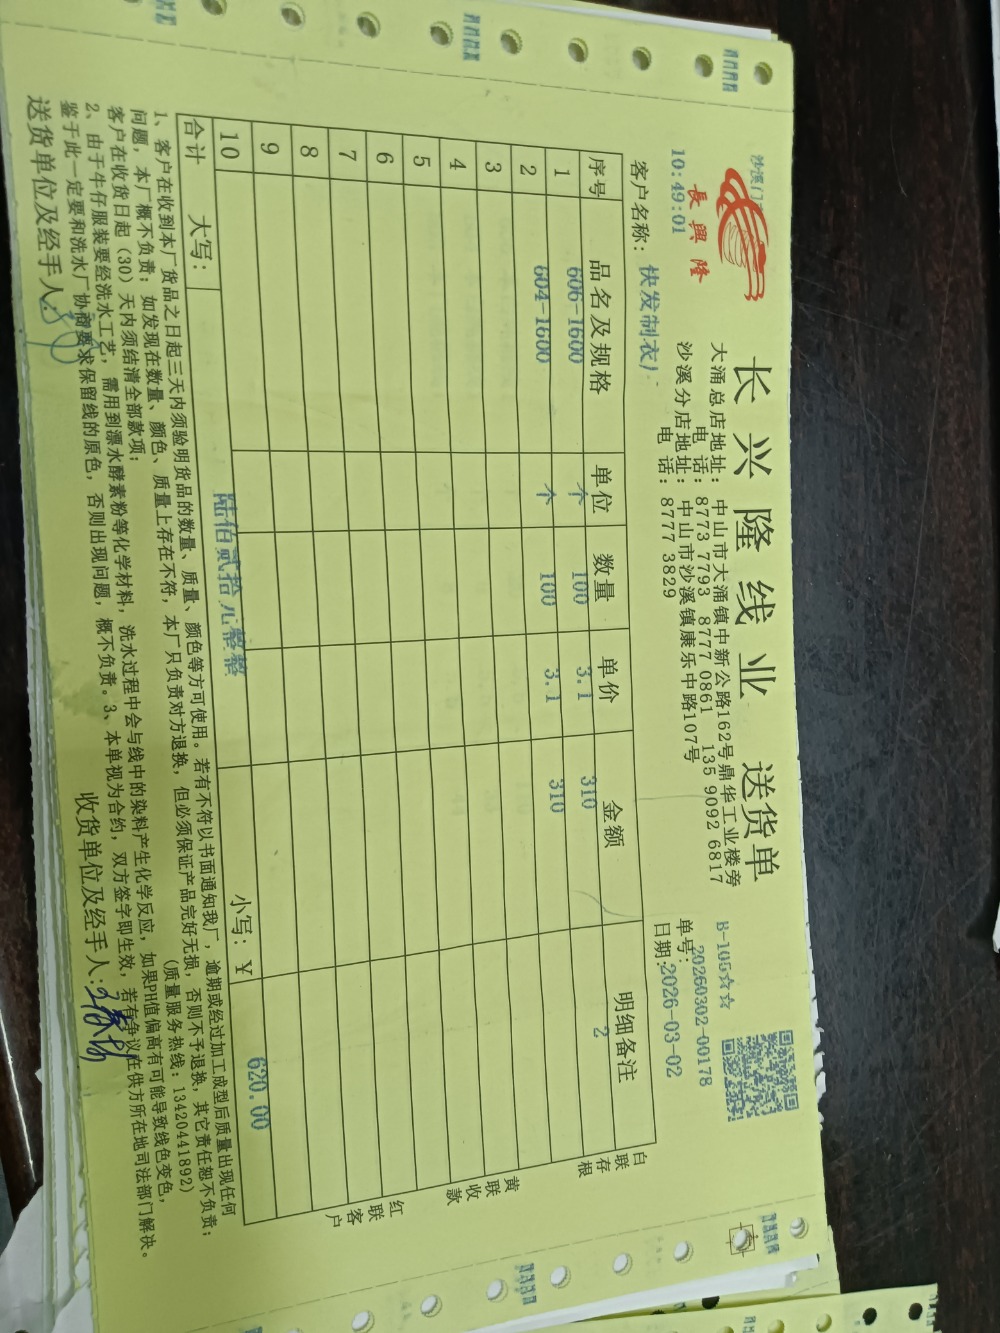 長興隆
沙溪门
10:49:01
长兴隆线业 送货单
大涌总店地址: 中山市大涌镇中新公路162号鼎华工业楼旁
电 话: 8773 7793 8777 0861 135 9092 6817
沙溪分店地址: 中山市沙溪镇康乐中路107号
电 话: 8777 3829
B-105☆☆
单号: 20260302-00178
日期: 2026-03-02
客户名称: 快发制衣
序号 品名及规格 单位 数量 单价 金额 明细备注
1 606-1600 个 100 3.1 310 2
2 604-1600 个 100 3.1 310
3
4
5
6
7
8
9
10
合计 大写: 陆佰贰拾元整整 小写: ¥ 620.00
白联存根
黄联收款
红联客户
1、客户在收到本厂货品之日起三天内须验明货品的数量、质量、颜色等方可使用。若有不符以书面通知我厂,逾期或经过加工成型后质量出现任何
问题,本厂概不负责;如发现在数量、颜色、质量上存在不符,本厂只负责对方退换,但必须保证产品完好无损,否则不予退换,其它责任恕不负责;
客户在收货日起(30)天内须结清全部款项; (质量服务热线:13420441892)
2、由于牛仔服装要经洗水工艺,需用到漂水酵素粉等化学材料,洗水过程中会与线中的染料产生化学反应,如果PH值偏高有可能导致线色变色,
鉴于此一定要和洗水厂协商要求保留线的原色,否则出现问题,概不负责。3、本单视为合约,双方签字即生效,若有争议在供方所在地司法部门解决。
送货单位及经手人: 收货单位及经手人: